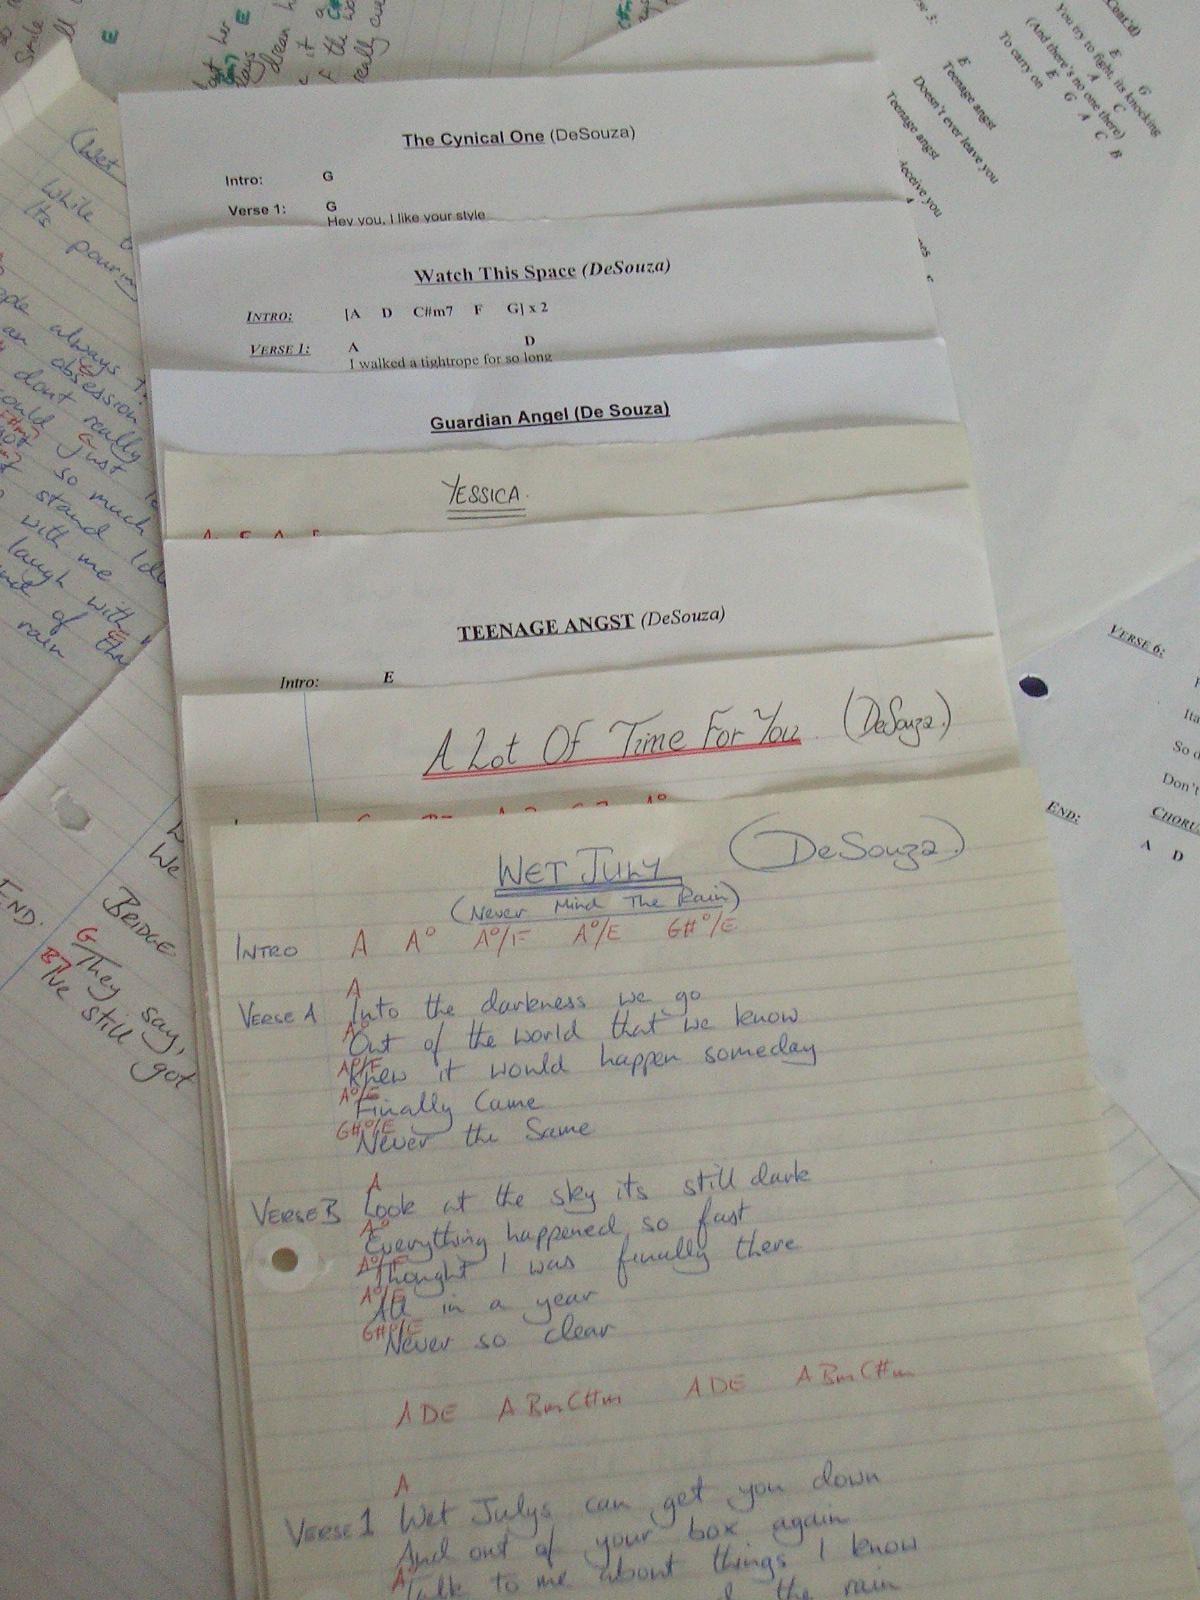 The Cynical One (DeSouza)
Intro: G
Verse 1: G
Hey you, I like your style
Watch This Space (DeSouza)
INTRO: [A D C#m7 F G] x 2
VERSE 1: A D
I walked a tightrope for so long
Guardian Angel (De Souza)
YESSICA.
TEENAGE ANGST (DeSouza)
Intro: E
A Lot Of Time For You (DeSouza)
WET JULY (DeSouza)
(Never Mind The Rain)
INTRO A A° A°/F A°/E G#°/E
A
VERSE A Into the darkness we go
A°
Out of the world that we know
A°/F
Knew it would happen someday
A°/E
Finally Came
G#°/E
Never the Same
A
VERSE B Look at the sky its still dark
A°
Everything happened so fast
A°/F
Thought I was finally there
A°/E
All in a year
G#°/E
Never so clear
A D E A Bm C#m A D E A Bm C#m
A
VERSE 1 Wet Julys can get you down
And out of your box again
Talk to me about things I know
the rain
Cont'd)
E G
You try to fight, its knocking
A C
(And there's no one there)
E G A C B
To carry on
E
Teenage angst
Doesn't ever leave you
Teenage angst
VERSE 6:
So
Don't
END: CHORU
A D
(Wet
While
Its pouring
always
an obsession
dont really
could just
so much
stand
with me
laugh with
of the
rain
We
END.
BRIDGE
G
They say,
B7
Ive still got